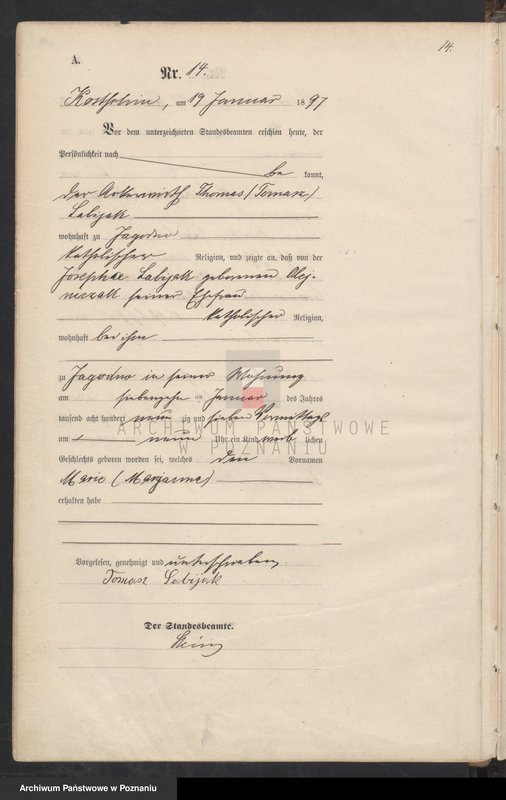 14.
A.
Nr. 14.
Kostschin, am 19 Januar 1897
Vor dem unterzeichneten Standesbeamten erschien heute, der
Persönlichkeit nach
be kannt,
der Ackerwirth Thomas (Tomasz)
Labijak
wohnhaft zu Jagodno
katholischer Religion, und zeigte an, daß von der
Josepha Labijak geborenen Olej-
niczak seiner Ehefrau
katholischer Religion,
wohnhaft bei ihm
zu Jagodno in seiner Wohnung
am siebenzehn ten Januar des Jahres
tausend acht hundert neun zig und sieben Vormittags
um neun Uhr ein Kind weib lichen
Geschlechts geboren worden sei, welches den Vornamen
Marie (Maryanna)
erhalten habe
Vorgelesen, genehmigt und unterschrieben.
Tomasz Labijak
Der Standesbeamte.
ARCHIWUM PAŃSTWOWE
W POZNANIU
Archiwum Państwowe w Poznaniu